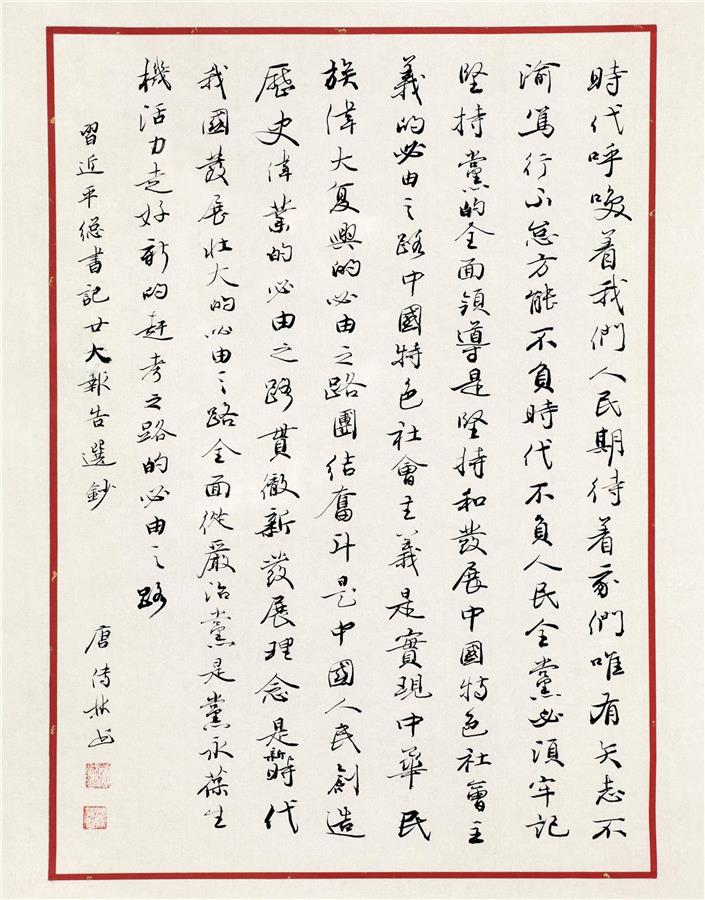 時代呼喚着我們人民期待着我們唯有矢志不
渝篤行不怠方能不負時代不負人民全黨必須牢記
堅持黨的全面領導是堅持和發展中國特色社會主
義的必由之路中國特色社會主義是實現中華民
族偉大復興的必由之路團結奮斗是中國人民創造
歷史偉業的必由之路貫徹新發展理念是新時代
我國發展壯大的必由之路全面從嚴治黨是黨永葆生
機活力走好新的赶考之路的必由之路
習近平總書記廿大報告選鈔
唐傳林书